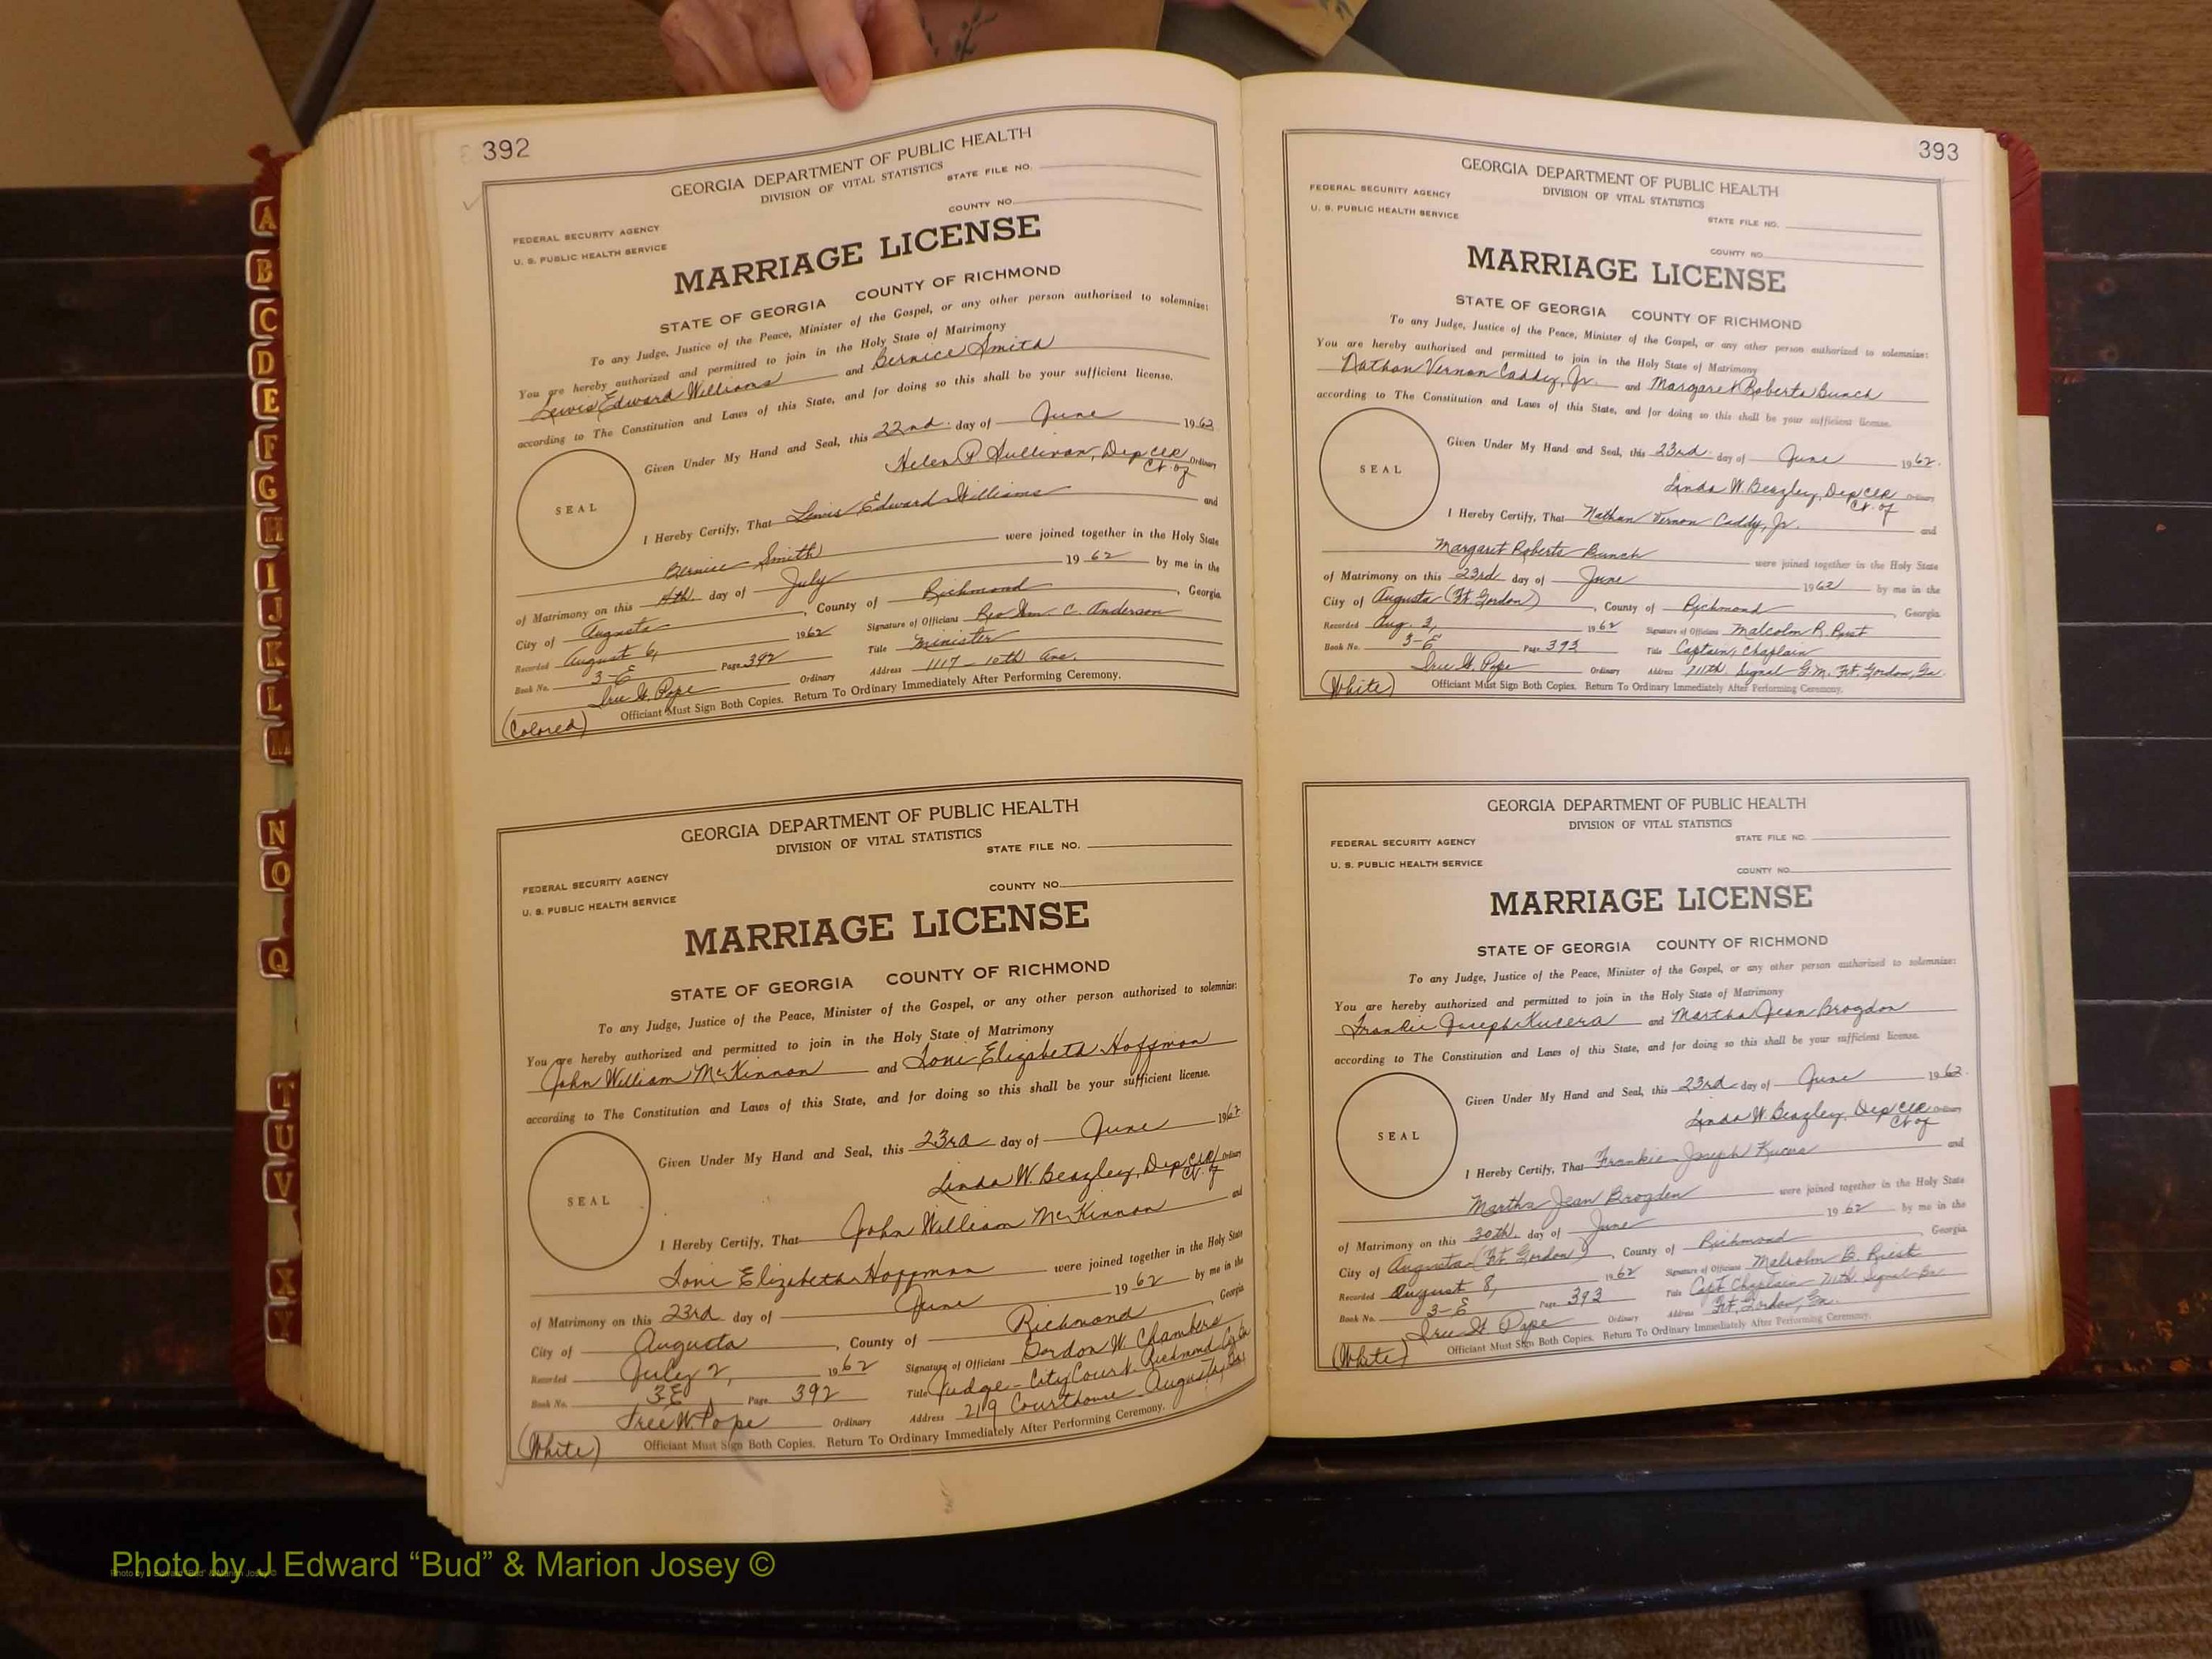 A
B
C
D
E
F
G
H
I
J
K
L
M
N
O
Q
T
U
V
X
Y
392
GEORGIA DEPARTMENT OF PUBLIC HEALTH
DIVISION OF VITAL STATISTICS
STATE FILE NO.
COUNTY NO.
FEDERAL SECURITY AGENCY
U. S. PUBLIC HEALTH SERVICE
MARRIAGE LICENSE
STATE OF GEORGIA COUNTY OF RICHMOND
To any Judge, Justice of the Peace, Minister of the Gospel, or any other person authorized to solemnize:
You are hereby authorized and permitted to join in the Holy State of Matrimony
Lewis Edward Williams and Bernice Smith
according to The Constitution and Laws of this State, and for doing so this shall be your sufficient license.
SEAL
Given Under My Hand and Seal, this 22nd. day of June 1962
Helen P. Sullivan, Dep Clk Ordinary
Ct. of
I Hereby Certify, That Lewis Edward Williams and
Bernice Smith were joined together in the Holy State
of Matrimony on this 4th. day of July 1962 by me in the
City of Augusta, County of Richmond, Georgia.
Recorded August 6, 1962 Signature of Officiant Rev Wm. C. Anderson
Book No. 3-E Page 392 Title Minister
Ire W. Pope Ordinary Address 1117 - 10th Ave.
Officiant Must Sign Both Copies. Return To Ordinary Immediately After Performing Ceremony.
(Colored)
GEORGIA DEPARTMENT OF PUBLIC HEALTH
DIVISION OF VITAL STATISTICS
STATE FILE NO.
COUNTY NO.
FEDERAL SECURITY AGENCY
U. S. PUBLIC HEALTH SERVICE
MARRIAGE LICENSE
STATE OF GEORGIA COUNTY OF RICHMOND
To any Judge, Justice of the Peace, Minister of the Gospel, or any other person authorized to solemnize:
You are hereby authorized and permitted to join in the Holy State of Matrimony
John William McKinnon and Toni Elizabeth Hoffman
according to The Constitution and Laws of this State, and for doing so this shall be your sufficient license.
SEAL
Given Under My Hand and Seal, this 23rd day of June 1962
Linda W. Beazley, Dep Clk Ordinary
Ct. of
I Hereby Certify, That John William McKinnon and
Toni Elizabeth Hoffman were joined together in the Holy State
of Matrimony on this 23rd day of June 1962 by me in the
City of Augusta, County of Richmond Georgia
Recorded July 2, 1962 Signature of Officiant Gordon W. Chambers
Book No. 3-E Page 392 Title Judge - City Court Richmond
Ire W. Pope Ordinary Address 219 Courthouse Augusta, Ga.
Officiant Must Sign Both Copies. Return To Ordinary Immediately After Performing Ceremony.
(White)
393
GEORGIA DEPARTMENT OF PUBLIC HEALTH
DIVISION OF VITAL STATISTICS
FEDERAL SECURITY AGENCY
U. S. PUBLIC HEALTH SERVICE
STATE FILE NO.
COUNTY NO.
MARRIAGE LICENSE
STATE OF GEORGIA COUNTY OF RICHMOND
To any Judge, Justice of the Peace, Minister of the Gospel, or any other person authorized to solemnize:
You are hereby authorized and permitted to join in the Holy State of Matrimony
Nathan Vernon Caddy, Jr. and Margaret Roberta Bunch
according to The Constitution and Laws of this State, and for doing so this shall be your sufficient license.
SEAL
Given Under My Hand and Seal, this 23rd. day of June 1962.
Linda W. Beazley, Dep Clk Ordinary
Ct. of
I Hereby Certify, That Nathan Vernon Caddy, Jr. and
Margaret Roberta Bunch were joined together in the Holy State
of Matrimony on this 23rd day of June 1962 by me in the
City of Augusta (Ft. Gordon), County of Richmond, Georgia.
Recorded Aug. 3, 1962 Signature of Officiant Malcolm R.
Book No. 3-E Page 393 Title Captain, Chaplain
Ire W. Pope Ordinary Address 711th Signal Ft. Gordon, Ga.
(White) Officiant Must Sign Both Copies. Return To Ordinary Immediately After Performing Ceremony.
GEORGIA DEPARTMENT OF PUBLIC HEALTH
DIVISION OF VITAL STATISTICS
STATE FILE NO.
FEDERAL SECURITY AGENCY
U. S. PUBLIC HEALTH SERVICE
COUNTY NO.
MARRIAGE LICENSE
STATE OF GEORGIA COUNTY OF RICHMOND
To any Judge, Justice of the Peace, Minister of the Gospel, or any other person authorized to solemnize:
You are hereby authorized and permitted to join in the Holy State of Matrimony
Frankie Joseph Kucera and Martha Jean Brogdon
according to The Constitution and Laws of this State, and for doing so this shall be your sufficient license.
SEAL
Given Under My Hand and Seal, this 23rd day of June 1962.
Linda W. Beazley, Dep Clk Ordinary
Ct of
I Hereby Certify, That Frankie Joseph and
Martha Jean Brogden were joined together in the Holy State
of Matrimony on this 30th. day of June 1962 by me in the
City of Augusta (Ft. Gordon), County of Richmond, Georgia.
Recorded August 8, 1962 Signature of Officiant Malcolm
Book No. 3-E Page 393 Title Capt Chaplain 711th. Signal Bn
Ire W. Pope Ordinary Address Ft. Gordon, Ga.
(White) Officiant Must Sign Both Copies. Return To Ordinary Immediately After Performing Ceremony.
Photo by J Edward “Bud” & Marion Josey ©
Photo by J Edward “Bud” & Marion Josey ©